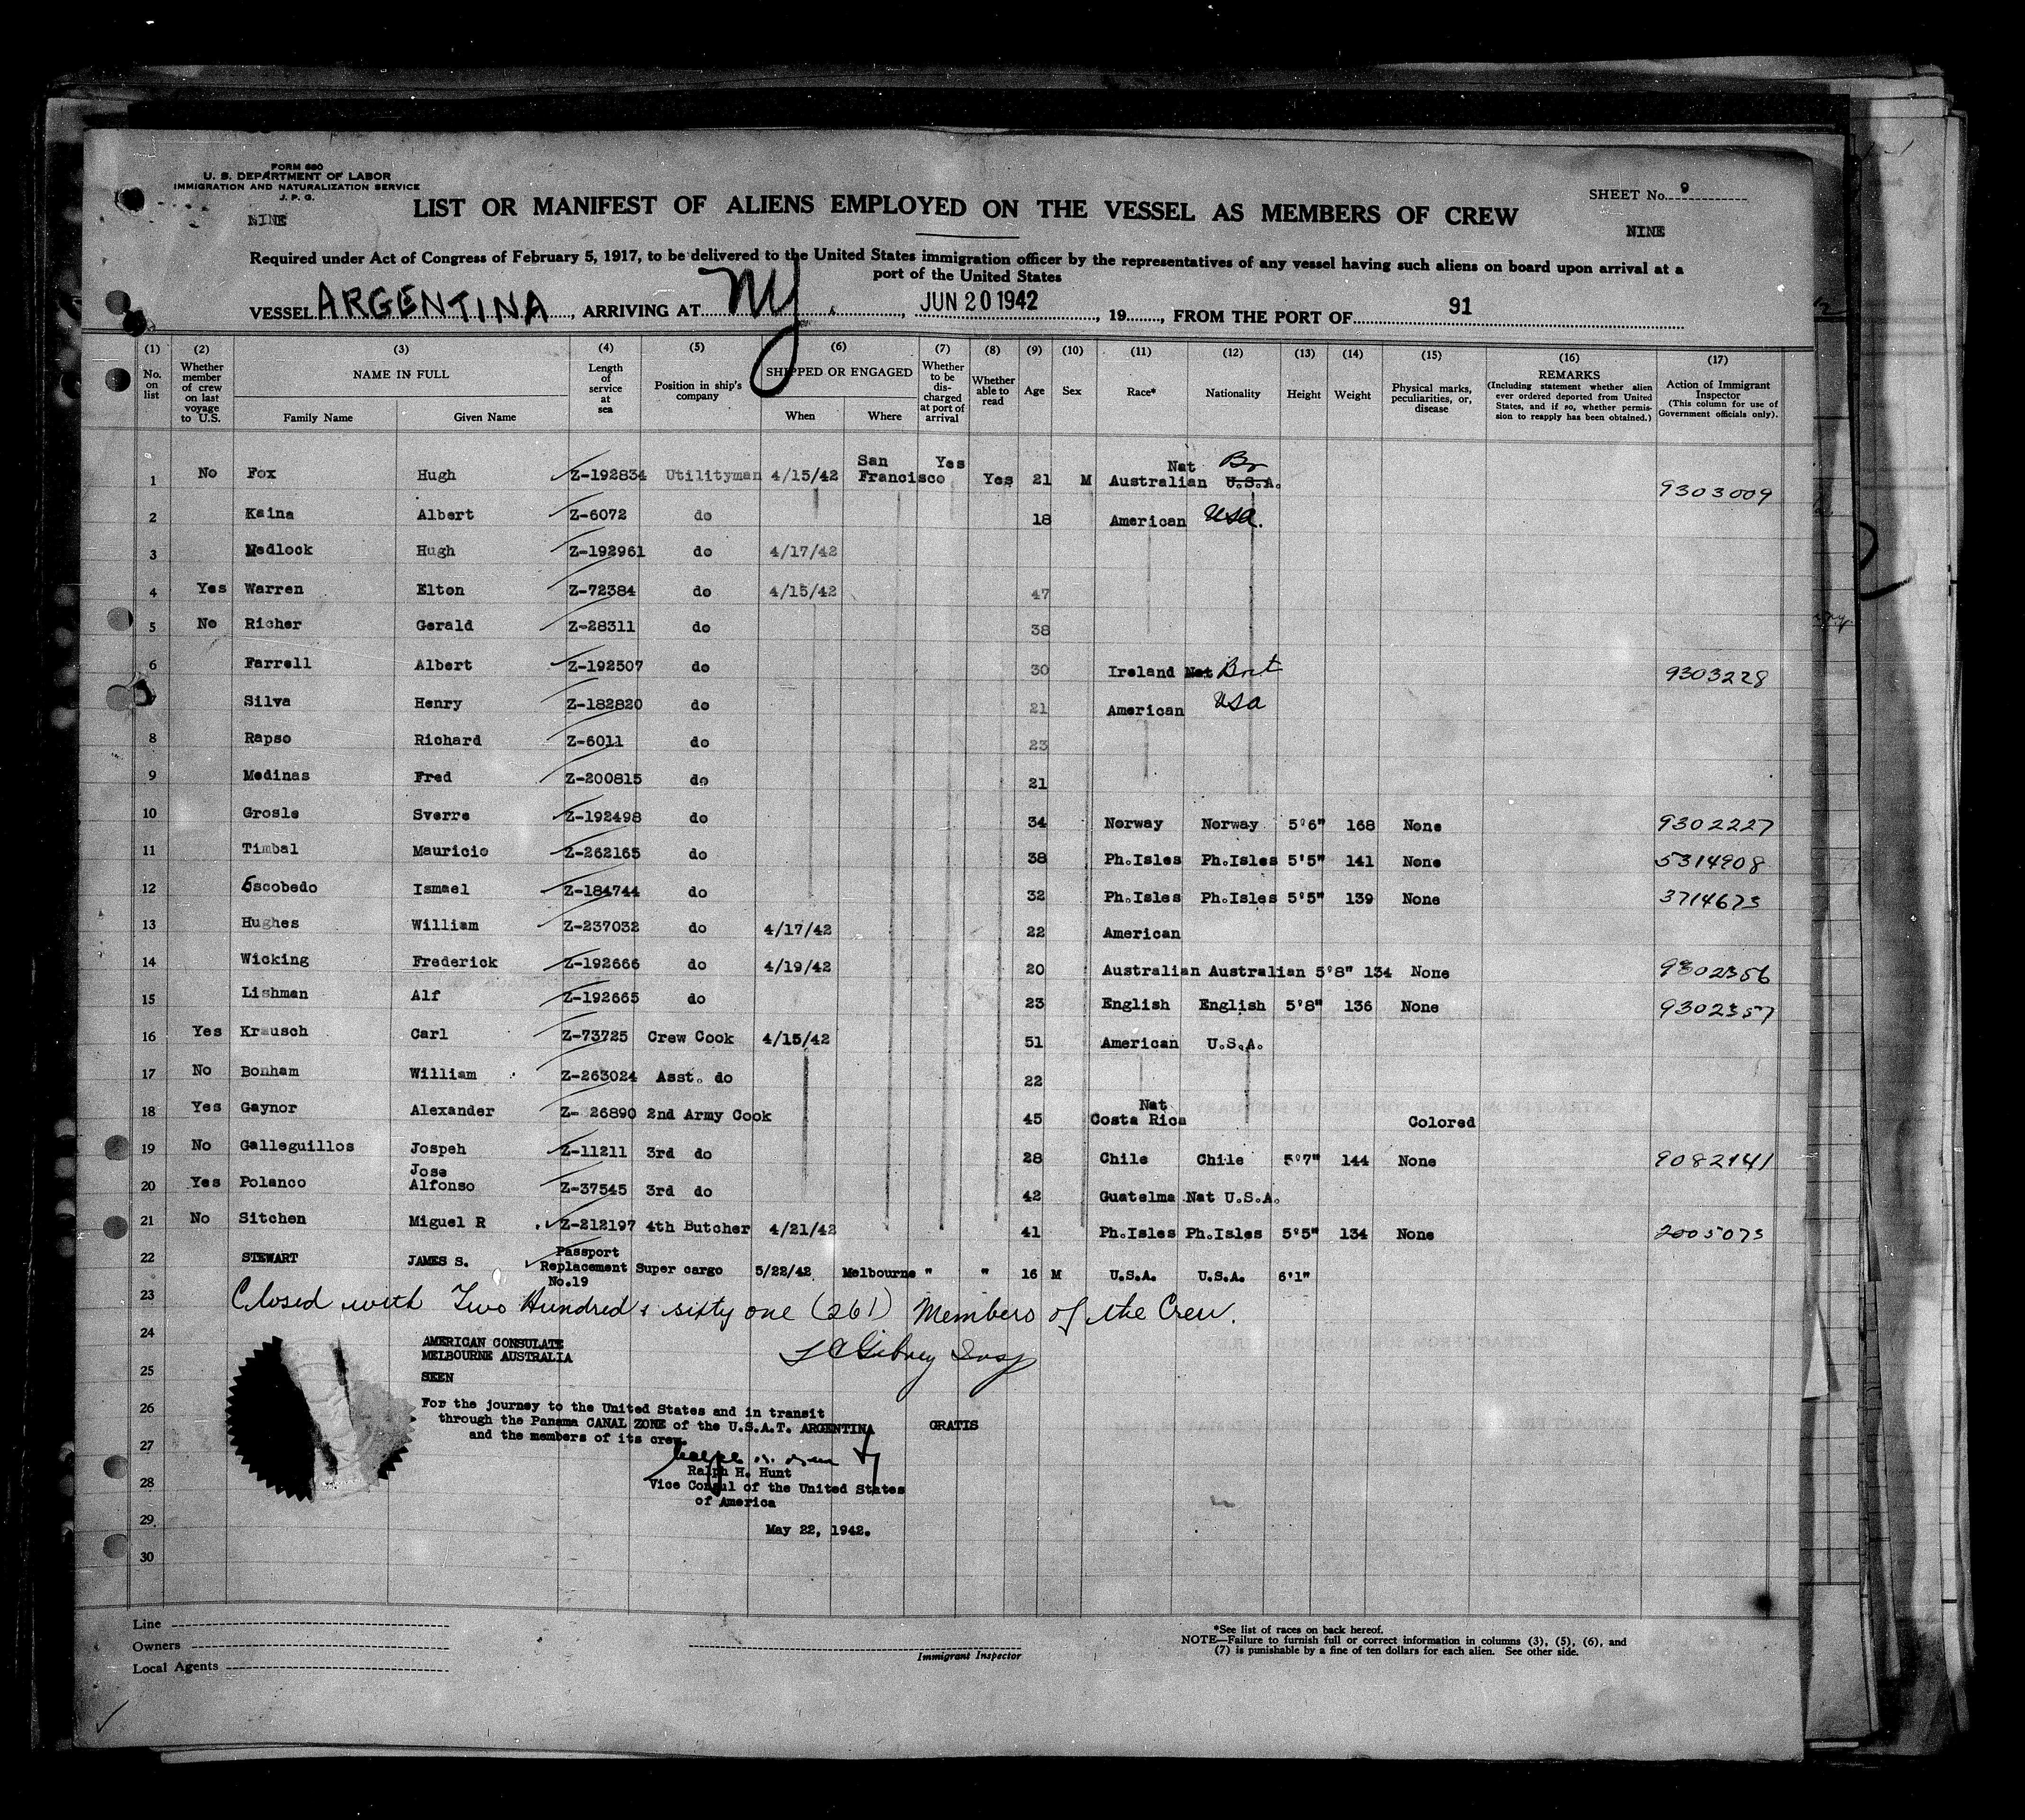 FORM 680
U. S. DEPARTMENT OF LABOR
IMMIGRATION AND NATURALIZATION SERVICE
J. P. G.
NINE
SHEET No. 9
NINE
LIST OR MANIFEST OF ALIENS EMPLOYED ON THE VESSEL AS MEMBERS OF CREW
Required under Act of Congress of February 5, 1917, to be delivered to the United States immigration officer by the representatives of any vessel having such aliens on board upon arrival at a
port of the United States
VESSEL ARGENTINA, ARRIVING AT NY, JUN 20 1942, 19, FROM THE PORT OF 91
(1) No. on list
(2) Whether member of crew on last voyage to U.S.
(3) NAME IN FULL Family Name Given Name
(4) Length of service at sea
(5) Position in ship's company
(6) SHIPPED OR ENGAGED When Where
(7) Whether to be discharged at port of arrival
(8) Whether able to read
(9) Age
(10) Sex
(11) Race*
(12) Nationality
(13) Height
(14) Weight
(15) Physical marks, peculiarities, or, disease
(16) REMARKS (Including statement whether alien ever ordered deported from United States, and if so, whether permission to reapply has been obtained.)
(17) Action of Immigrant Inspector (This column for use of Government officials only).
1 No Fox Hugh Z-192834 Utilityman 4/15/42 San Francisco Yes Yes 21 M Nat Australian U.S.A. Br 9303009
2 Kaina Albert Z-6072 do 18 American USA.
3 Medlock Hugh Z-192961 do 4/17/42
4 Yes Warren Elton Z-72384 do 4/15/42 47
5 No Richer Gerald Z-28311 do 38
6 Farrell Albert Z-192507 do 30 Ireland Nat Brit 9303228
7 Silva Henry Z-182820 do 21 American USA
8 Rapso Richard Z-6011 do 23
9 Medinas Fred Z-200815 do 21
10 Grosle Sverre Z-192498 do 34 Norway Norway 5'6" 168 None 9302227
11 Timbal Mauricio Z-262165 do 38 Ph.Isles Ph.Isles 5'5" 141 None 5314908
12 Escobedo Ismael Z-184744 do 32 Ph.Isles Ph.Isles 5'5" 139 None 3714673
13 Hughes William Z-237032 do 4/17/42 22 American
14 Wicking Frederick Z-192666 do 4/19/42 20 Australian Australian 5'8" 134 None 9302356
15 Lishman Alf Z-192665 do 23 English English 5'8" 136 None 9302357
16 Yes Krausch Carl Z-73725 Crew Cook 4/15/42 51 American U.S.A.
17 No Bonham William Z-263024 Asst. do 22
18 Yes Gaynor Alexander Z- 26890 2nd Army Cook 45 Nat Costa Rica Colored
19 No Galleguillos Jospeh Z-11211 3rd do 28 Chile Chile 5'7" 144 None 9082141
20 Yes Polanco Jose Alfonso Z-37545 3rd do 42 Guatelma Nat U.S.A.
21 No Sitchen Miguel R Z-212197 4th Butcher 4/21/42 41 Ph.Isles Ph.Isles 5'5" 134 None 2005073
22 STEWART JAMES S. Passport Replacement No.19 Super cargo 5/22/42 Melbourne " " 16 M U.S.A. U.S.A. 6'1"
23 Closed with Two Hundred & sixty one (261) Members of the Crew.
24 AMERICAN CONSULATE
MELBOURNE AUSTRALIA
25 SEEN
26 For the journey to the United States and in transit
through the Panama CANAL ZONE of the U.S.A.T. ARGENTINA GRATIS
27 and the members of its crew
Ralph H. Hunt
28 Vice Consul of the United States
of America
29 May 22, 1942.
30
Line
Owners
Local Agents
Immigrant Inspector
*See list of races on back hereof.
NOTE—Failure to furnish full or correct information in columns (3), (5), (6), and
(7) is punishable by a fine of ten dollars for each alien. See other side.